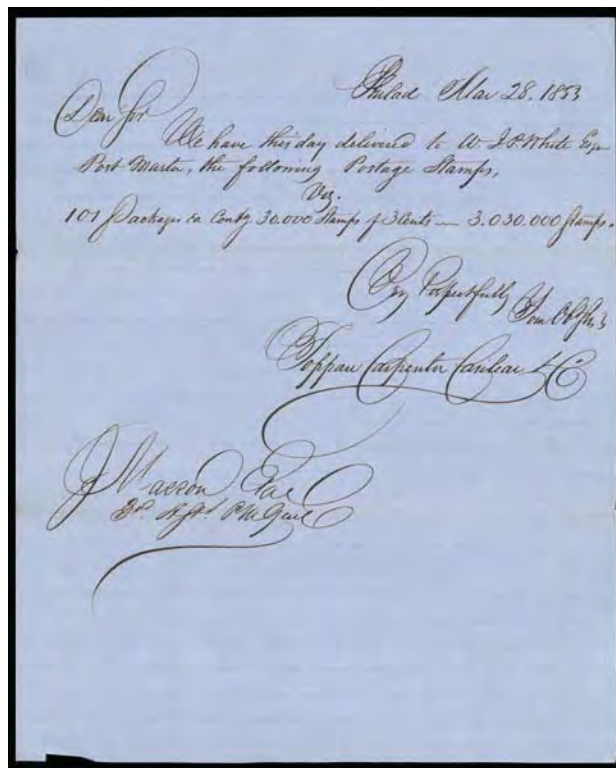 Philad Mar 28. 1853
Dear Sir
We have this day delivered to W. J. P. White Esqr
Post Master, the following Postage Stamps,
Viz.
101 Packages ea Contg 30.000 Stamps of 3 Cents — 3.030.000 Stamps.
Very Respectfully Your Obt Srvts
Toppan Carpenter Casilear & Co
J Marron Esqr
3rd Asst P M Genl